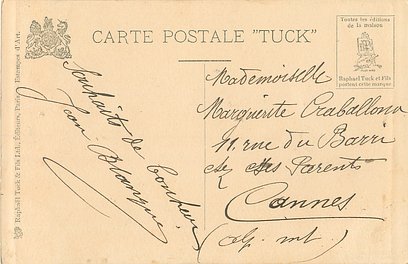 CARTE POSTALE "TUCK"
Toutes les éditions
de la maison
Raphael Tuck et Fils
portent cette marque
Raphaël Tuck & Fils Ltd., Éditeurs, Paris. Estampes d'Art.
Souhaits de bonheur
Jean
Mademoiselle
Marguerite Craballona
11 rue du Barri
chez ses Parents
Cannes
(alp. mt.)